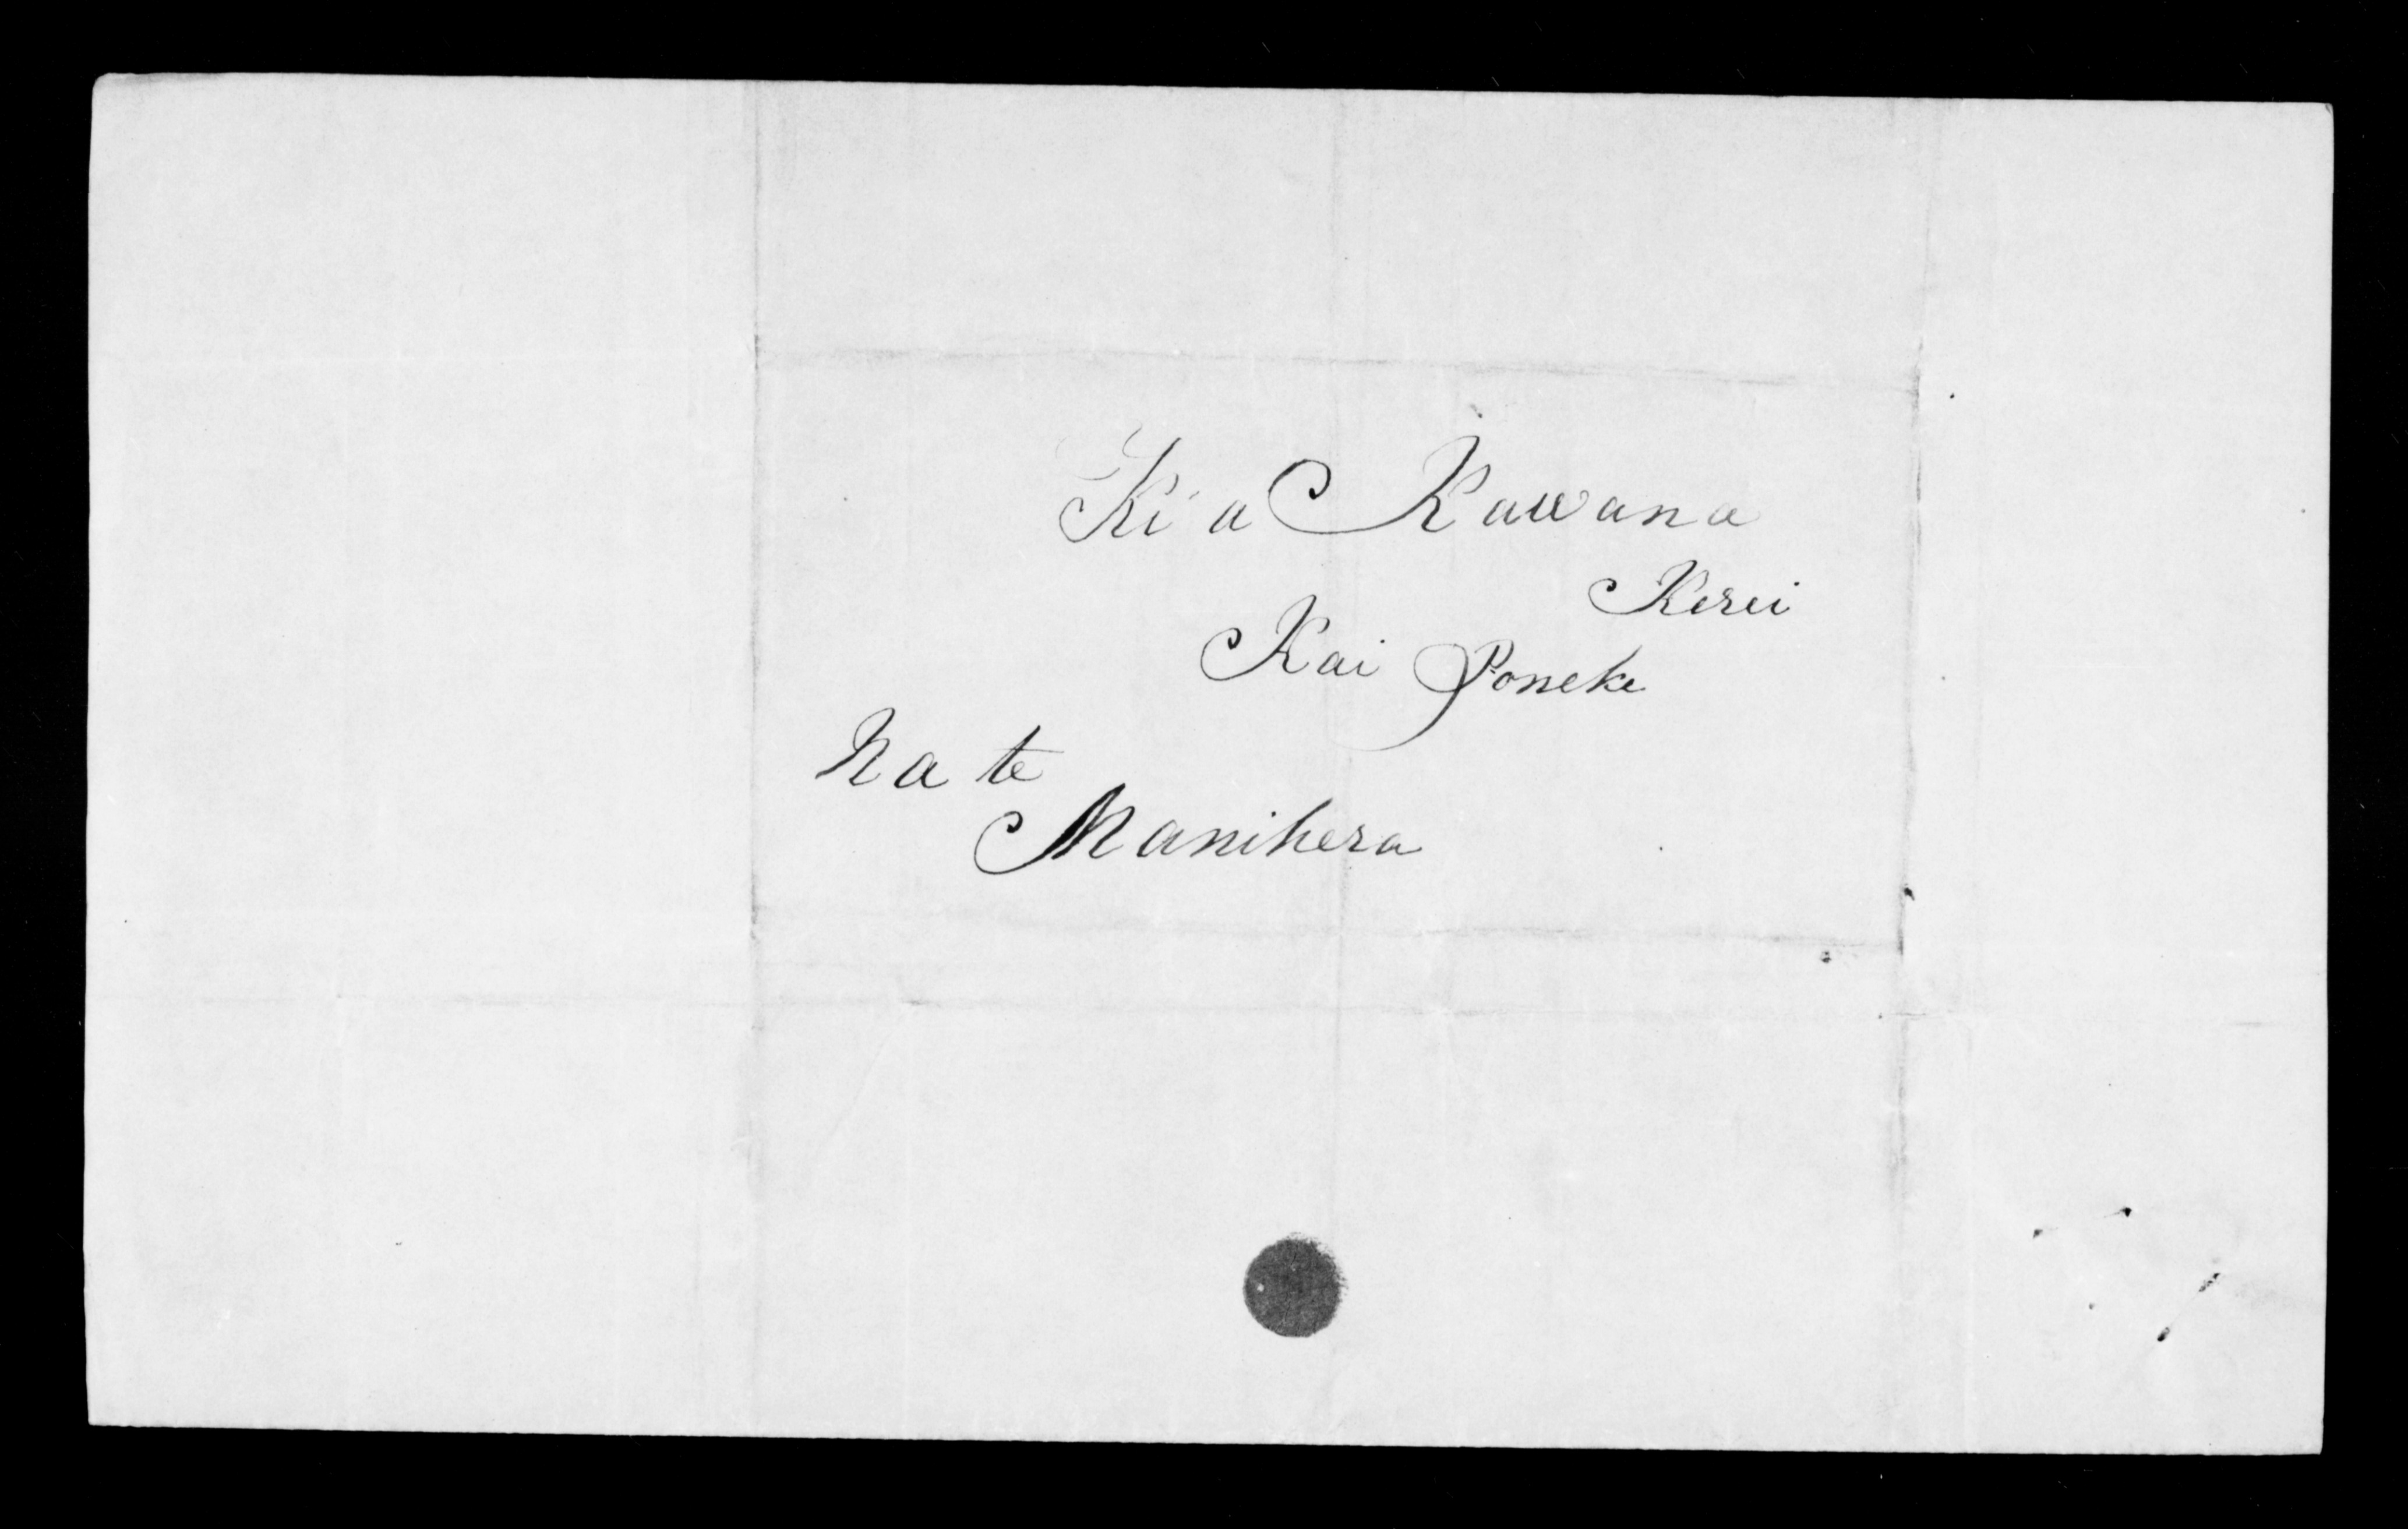 Ki a Kawana
Kerei
Kai Poneke
Na te
Manihera